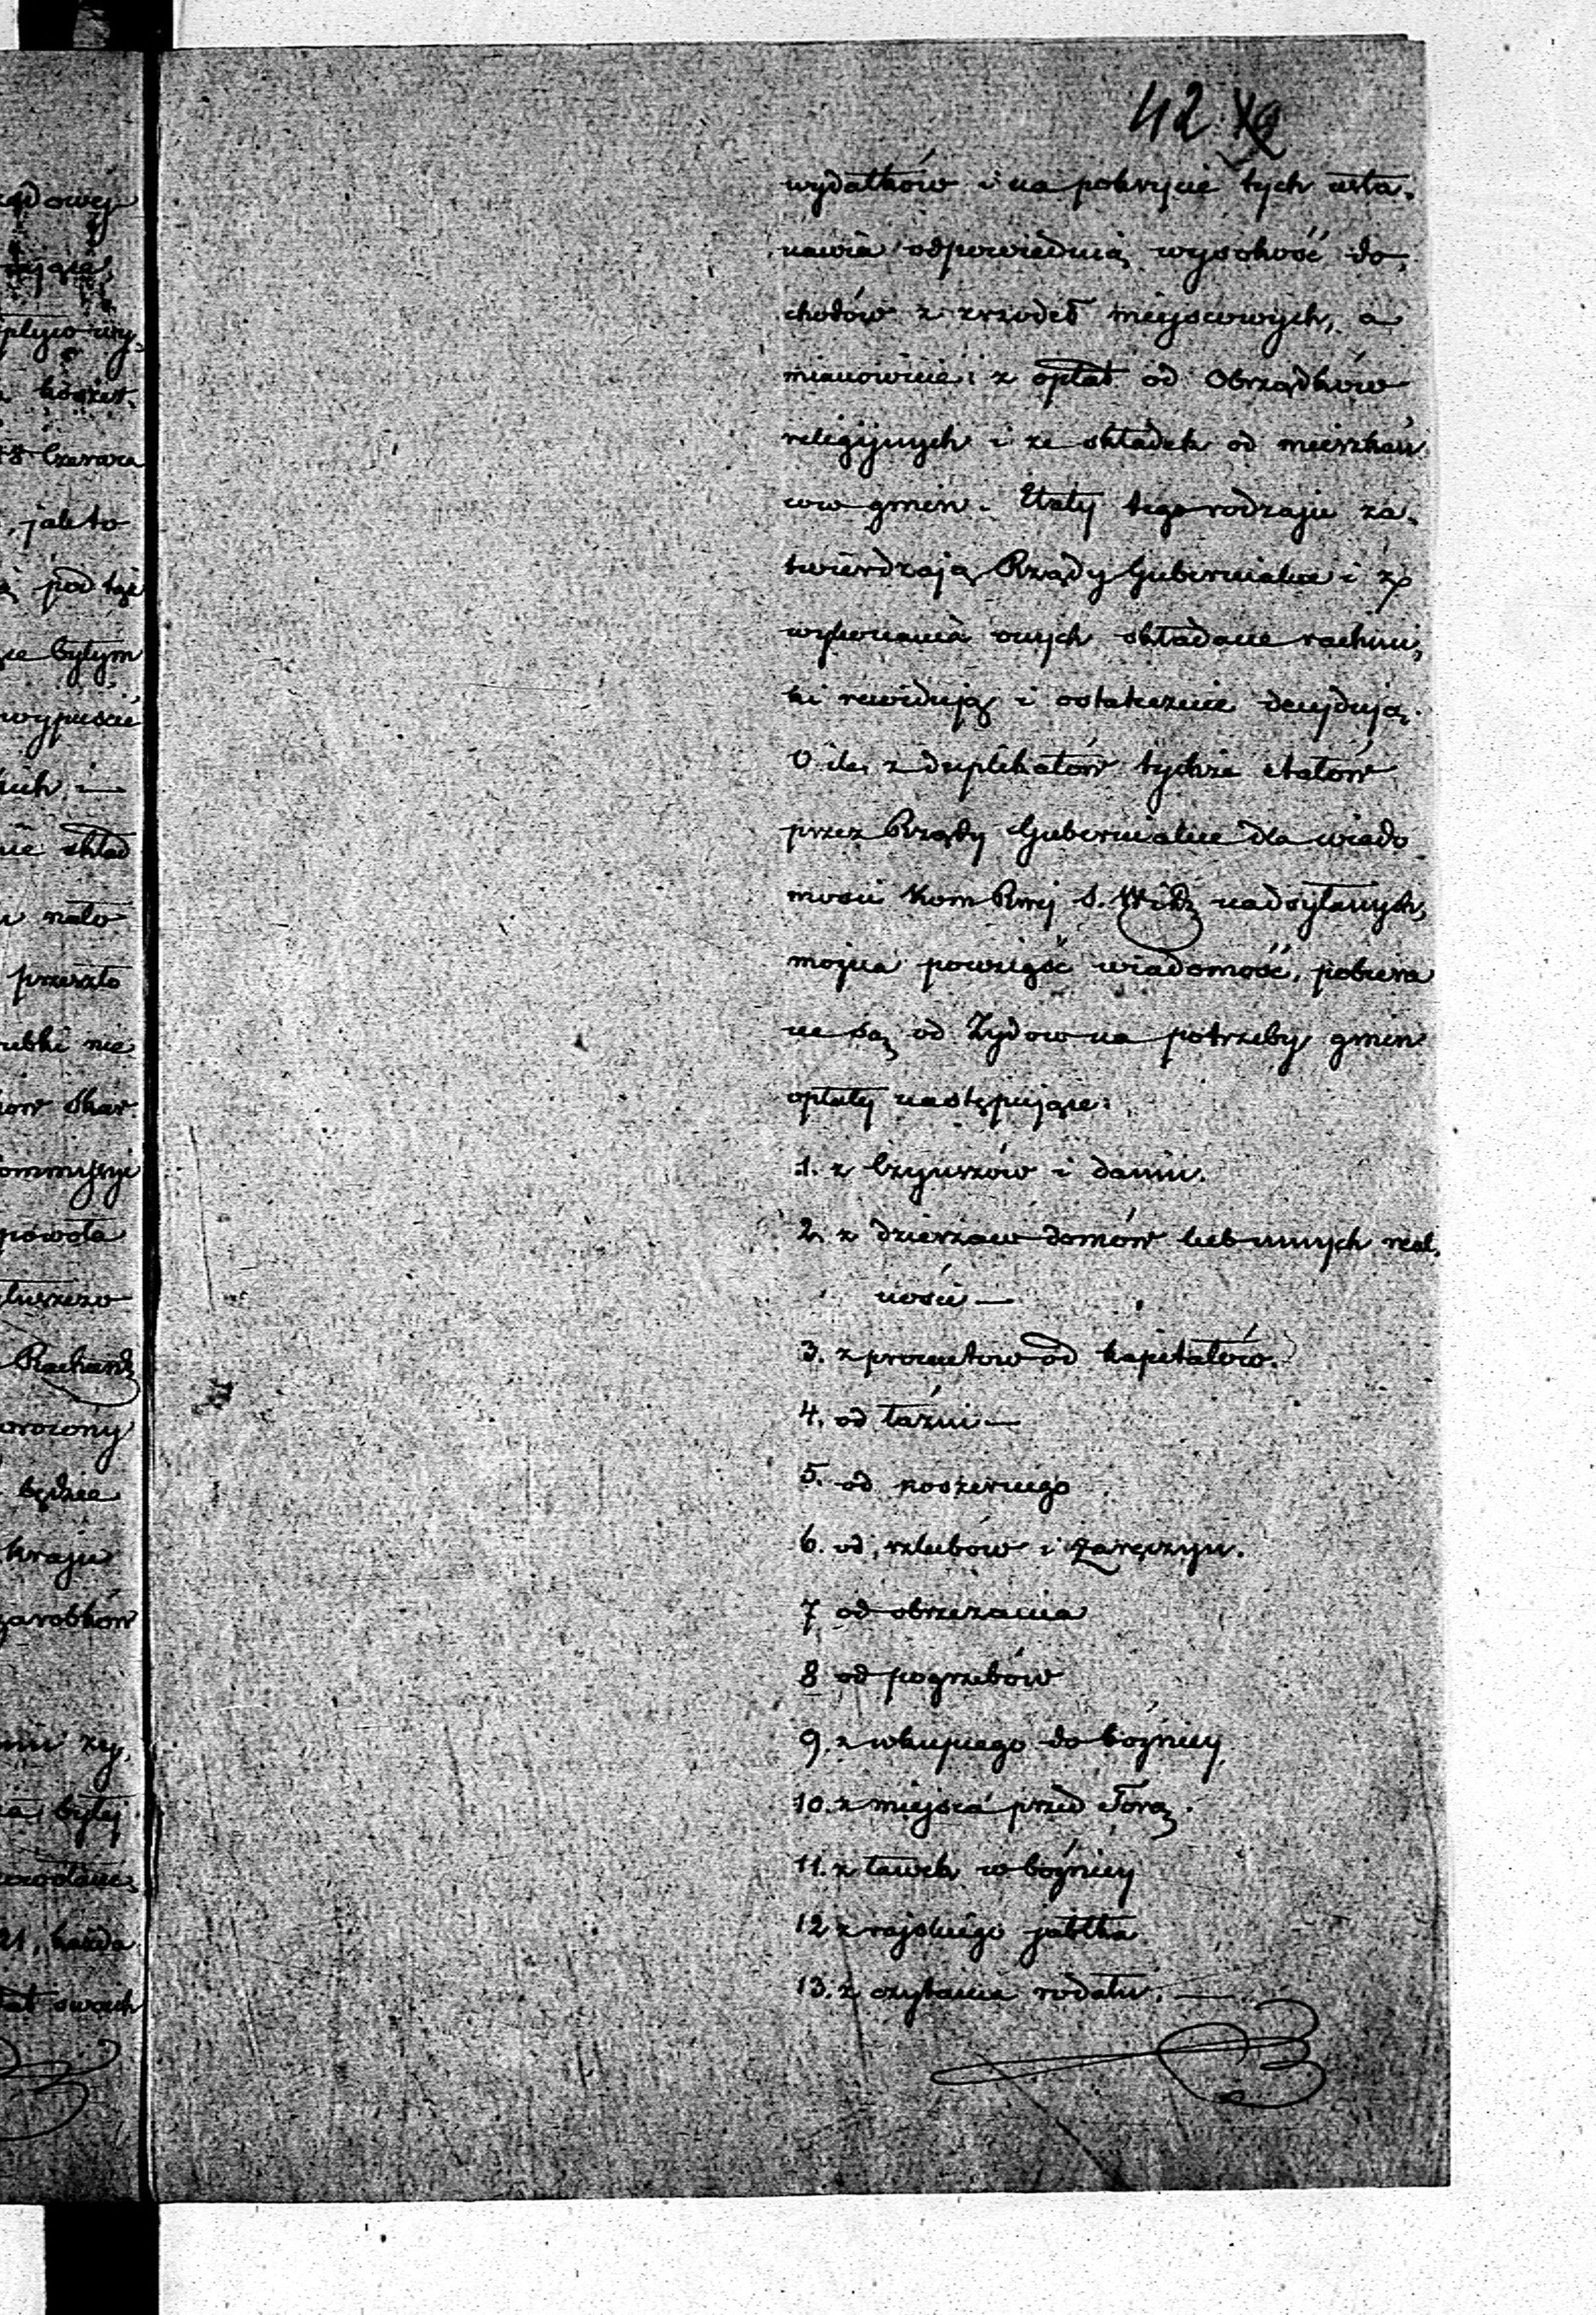 42
wydatków i na pokrycie tych usta,
nawia odpowiednią wysokość do,
chodów z zrzódeł miejscowych, a
mianowicie: z opłat od Obrządków
religijnych i ze składek od mieszkań
ców gmin. Etaty tego rodzaju za,
twierdzają Rządy Gubernialne i z
wykonania onych składane rachun,
ki rewidują i ostatecznie decydują.
O ile z duplikatów tychże etatów
przez Rządy Gubernialne dla wiado
mości Kom Rwej S. W. i D. nadsyłanych,
można powziąść wiadomość, pobiera
ne są od Żydow na potrzeby gmin
opłaty następujące:
1. z Czynszów i danin.
2. z dzierzaw domów lub innych real,
ności —
3. z procentow od kapitałów.
4. od łaźni —
5. od koszernego
6. od szlubów i zaręczyn.
7 od obrzezania
8 od pogrzebów
9. z wkupnego do bóżnicy
10. z miejsca przed Torą.
11. z ławek w bóżnicy
12 z rajskiego jabłka
13. z czytania rodału. —
ądowej
wy,
8 Czerwca
, jako to
pod tąż
byłym
wypuście
skład
nato
przeszło
nie
Skar
ommissyi
powoła
Rachund
będzie
Kraju
zarobków
byłej
21, każda
swoich